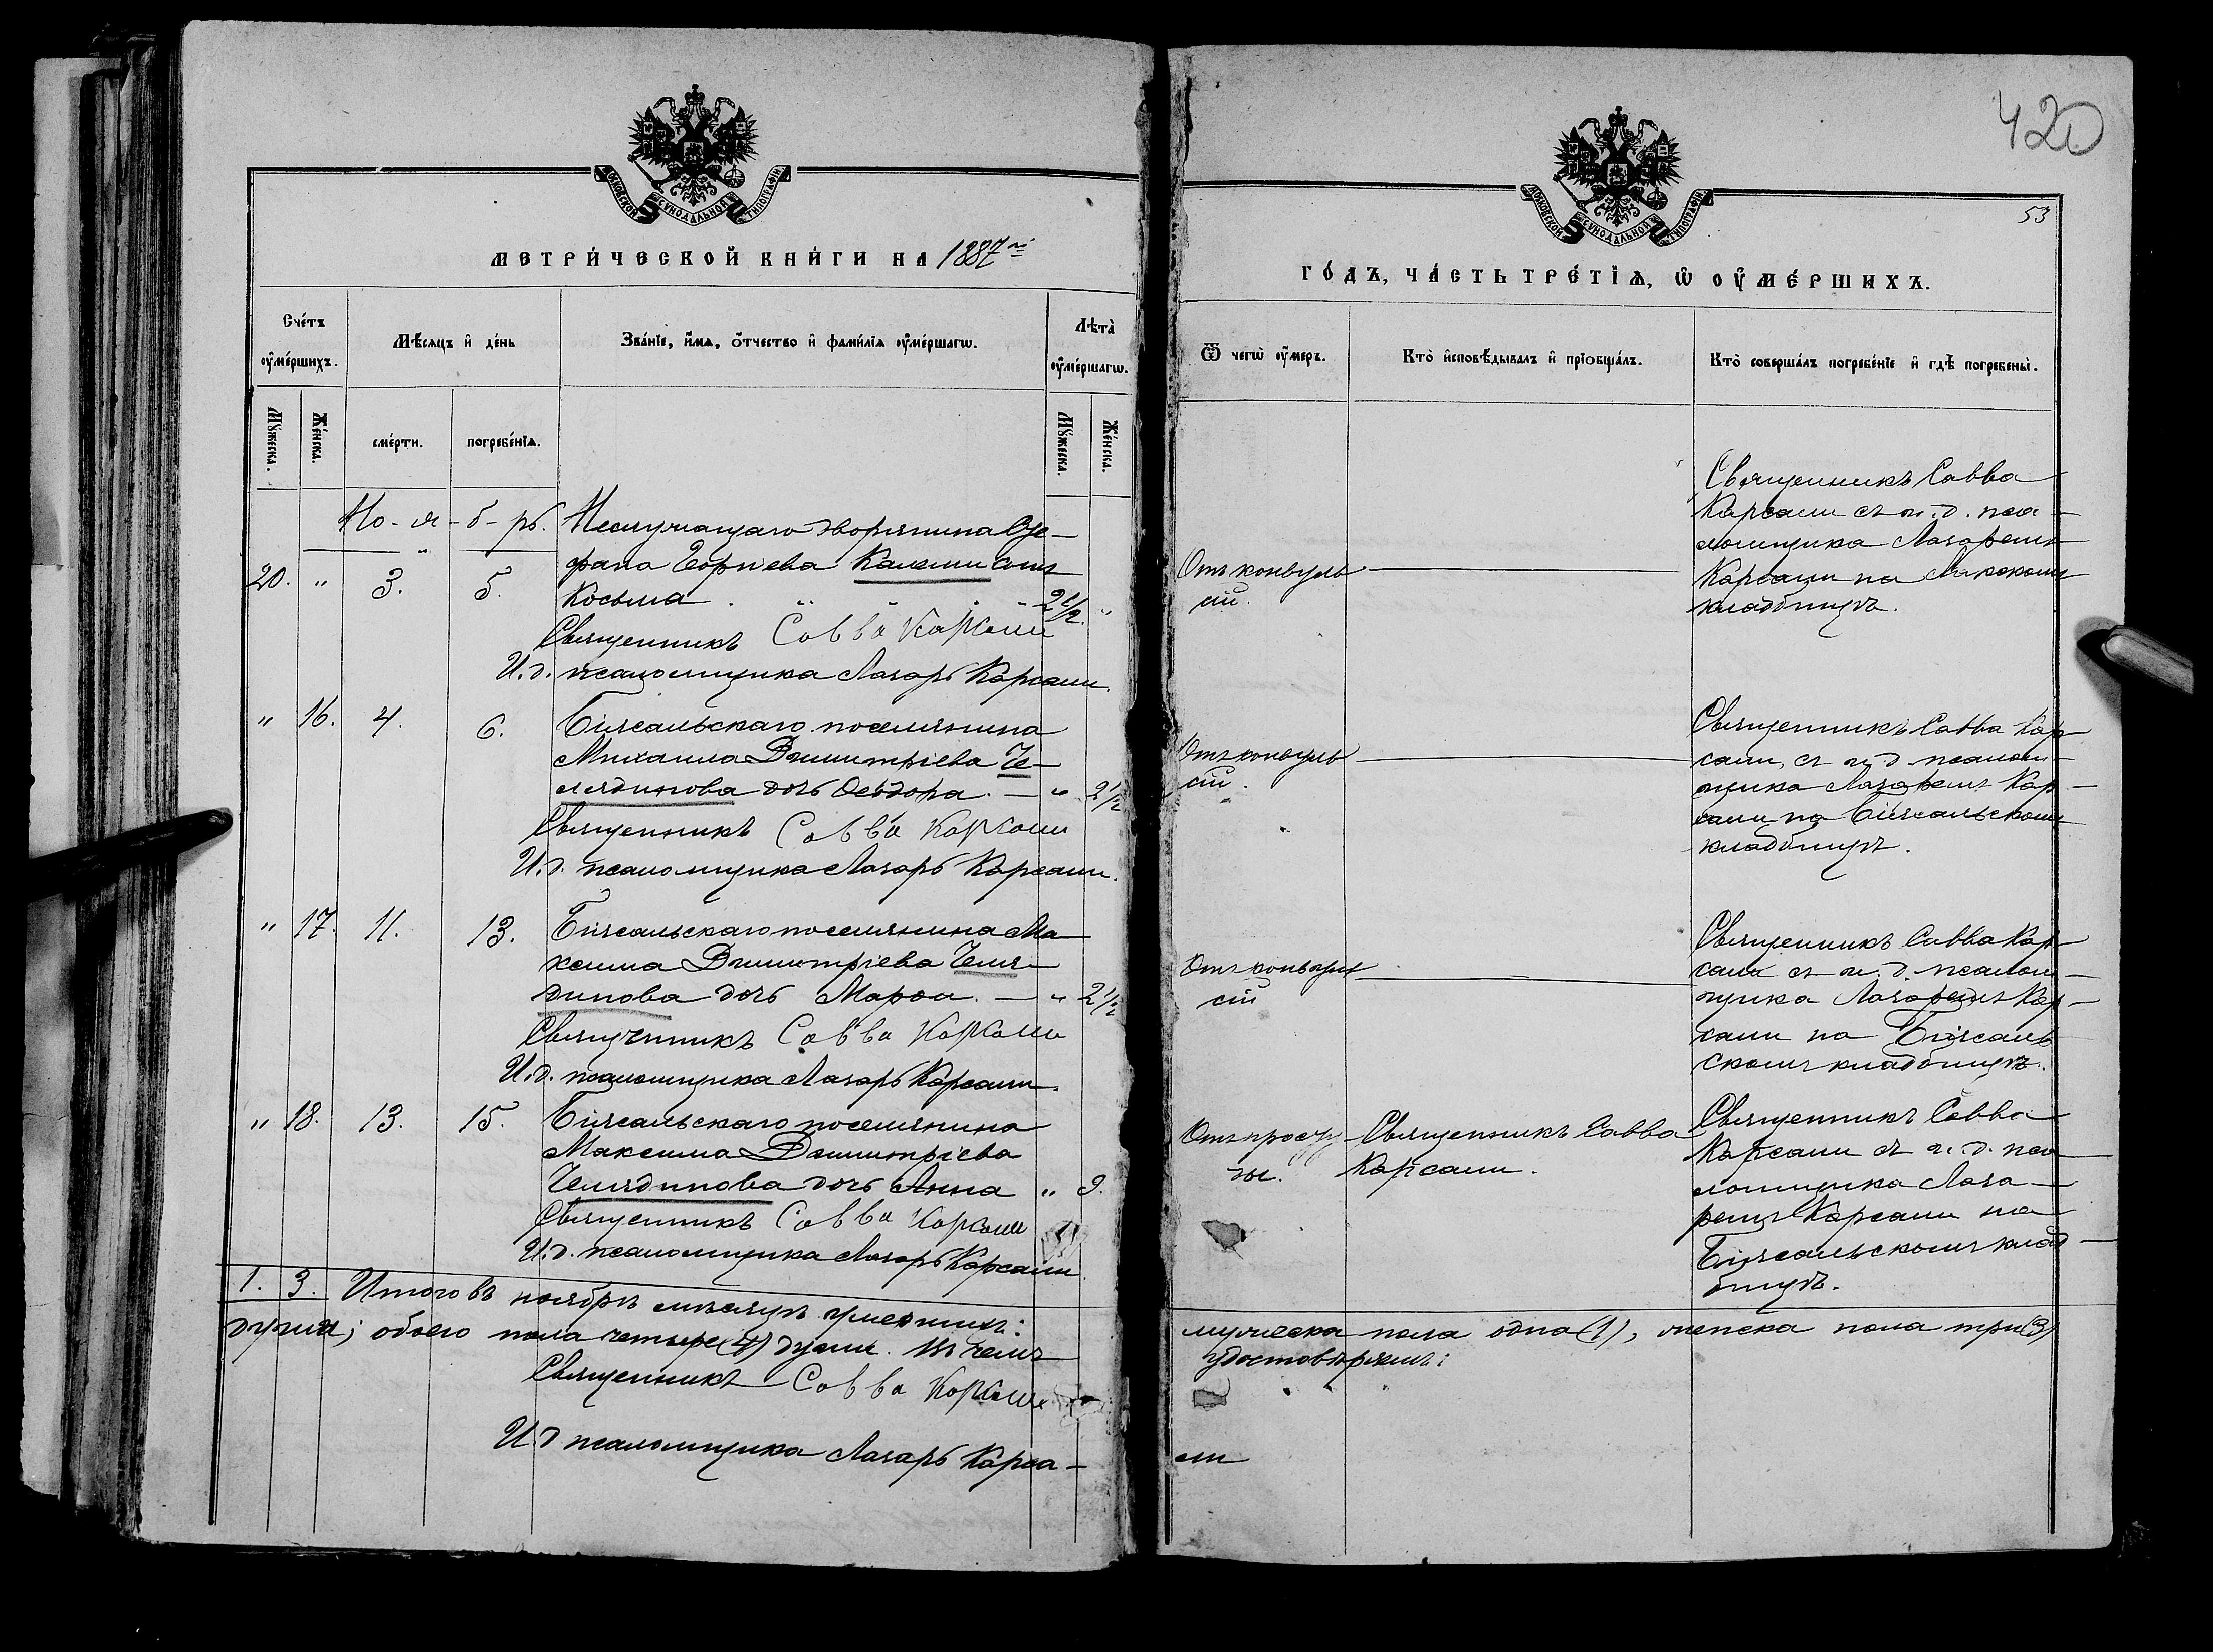 420
53
МОСКОВСКОЙ СѴНОДАЛЬНОЙ ТИПОГРАФІИ
МОСКОВСКОЙ СѴНОДАЛЬНОЙ ТИПОГРАФІИ
МЕТРИ́ЧЕСКОЙ КНИ́ГИ НА 1887й
ГО́ДЪ, ЧА́СТЬ ТРЕ́ТІѦ, Ѡ҆ ОУ҆МЕ́РШИХЪ.
Сче́тъ оу҆ме́ршихъ.
Мѣ́сяцъ и҆ де́нь
Зва́нїе, и҆́мѧ, ѻ҆́тчество и҆ фами́лїѧ оу҆ме́ршагѡ.
Лѣта̀ оу҆ме́ршагѡ.
Ѿ чегѡ̀ оу҆́меръ.
Кто̀ и҆сповѣ́дывалъ и҆ прїѡбща́лъ.
Кто̀ соверша́лъ погребе́нїе и҆ гдѣ̀ погребены̀.
Мꙋ́жеска.
Же́нска.
сме́рти.
погребе́нїѧ.
Мꙋ́жеска.
Же́нска.
Но - я - б - рь. Неслужащаго дворянина Сте-
фана Георгіева Калемии сынъ
20. " 3. 5. Косьма . " " . " 2 1/2. "
Священникъ Савва Карсами
И. д. псаломщика Лазарь Карсами.
Отъ конвуль
сій.
Священникъ Савва
Карсами съ и. д. пса-
ломщика Лазаремъ
Карсами на
кладбищѣ.
" 16. 4. 6. Біясальскаго поселянина
Михаила Димитріева Че-
лядинова дочь Ѳеодора. — " 2 1/2
Священникъ Савва Карсами
И. д. псаломщика Лазарь Карсами.
Отъ конвуль
сій.
Священникъ Савва Кар-
сами, съ и. д. псалом-
щика Лазаремъ Кар-
сами на Біясальскомъ
кладбищѣ.
" 17. 11. 13. Біясальскаго поселянина Ма-
ксима Димитріева Челя-
динова дочь Марѳа. — " 2 1/2
Священникъ Савва Карсами
И. д. псаломщика Лазарь Карсами.
Отъ конвуль
сій
Священникъ Савва Кар-
сами съ и. д. псалом-
щика Лазаремъ Кар-
сами на Біясаль
скомъ кладбищѣ.
" 18. 13. 15. Біясальскаго поселянина
Максима Димитріева
Челядинова дочь Анна " 9.
Священникъ Савва Карсами
И. д. псаломщика Лазарь Карсами.
Отъ просту-
ды.
Священникъ Савва
Карсами.
Священникъ Савва
Карсами съ и. д. пса-
ломщика Лаза-
ремъ Карсами на
Біясальскомъ клад-
бищѣ.
1. 3. Итого въ ноябрѣ мѣсяцѣ умершихъ: мужеска пола одна (1), женска пола три (3)
души; обоего пола четыре (4) души. Въ чемъ удостовѣряемъ:
Священникъ Савва Карсами
И. д. псаломщика Лазарь Карса-
ми